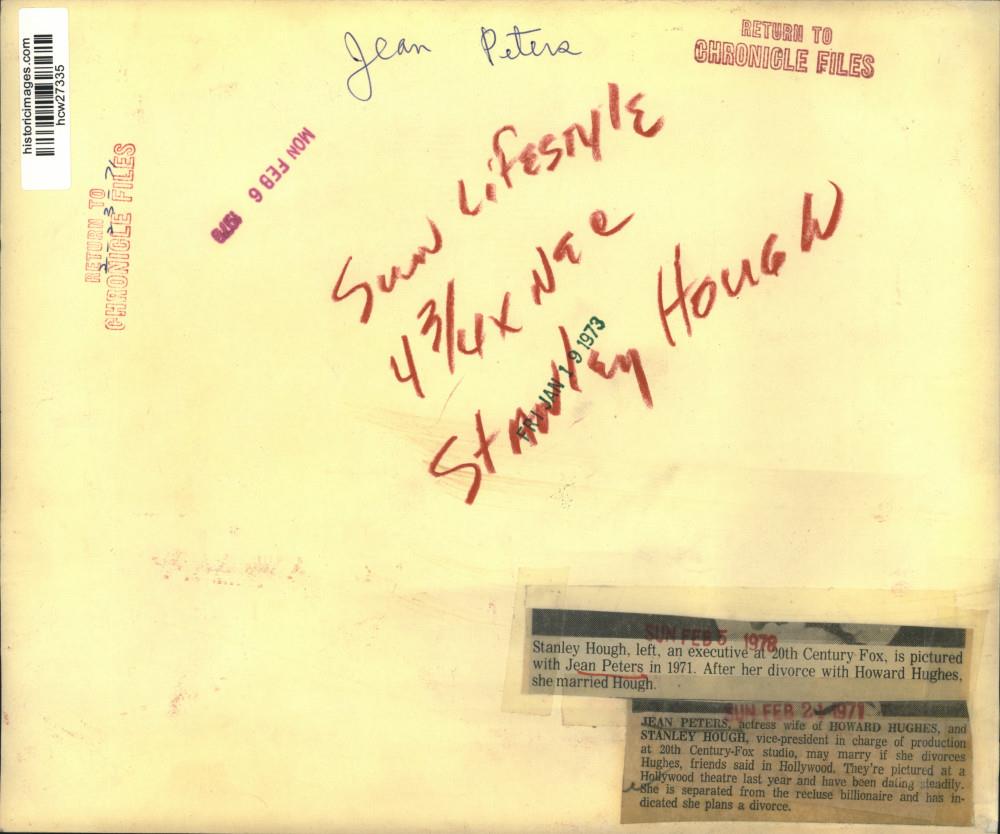 historicimages.com
hcw27335
Jean Peters
RETURN TO
CHRONICLE FILES
RETURN TO
CHRONICLE FILES
MON FEB 6 1978
Sun Lifestyle
4 3/4 x
Stanley Hough
FRI JAN 19 1973
SUN FEB 5 1978
Stanley Hough, left, an executive at 20th Century Fox, is pictured
with Jean Peters in 1971. After her divorce with Howard Hughes,
she married Hough.
SUN FEB 21 1971
JEAN PETERS, actress wife of HOWARD HUGHES, and
STANLEY HOUGH, vice-president in charge of production
at 20th Century-Fox studio, may marry if she divorces
Hughes, friends said in Hollywood. They're pictured at a
Hollywood theatre last year and have been dating steadily.
She is separated from the recluse billionaire and has in-
dicated she plans a divorce.